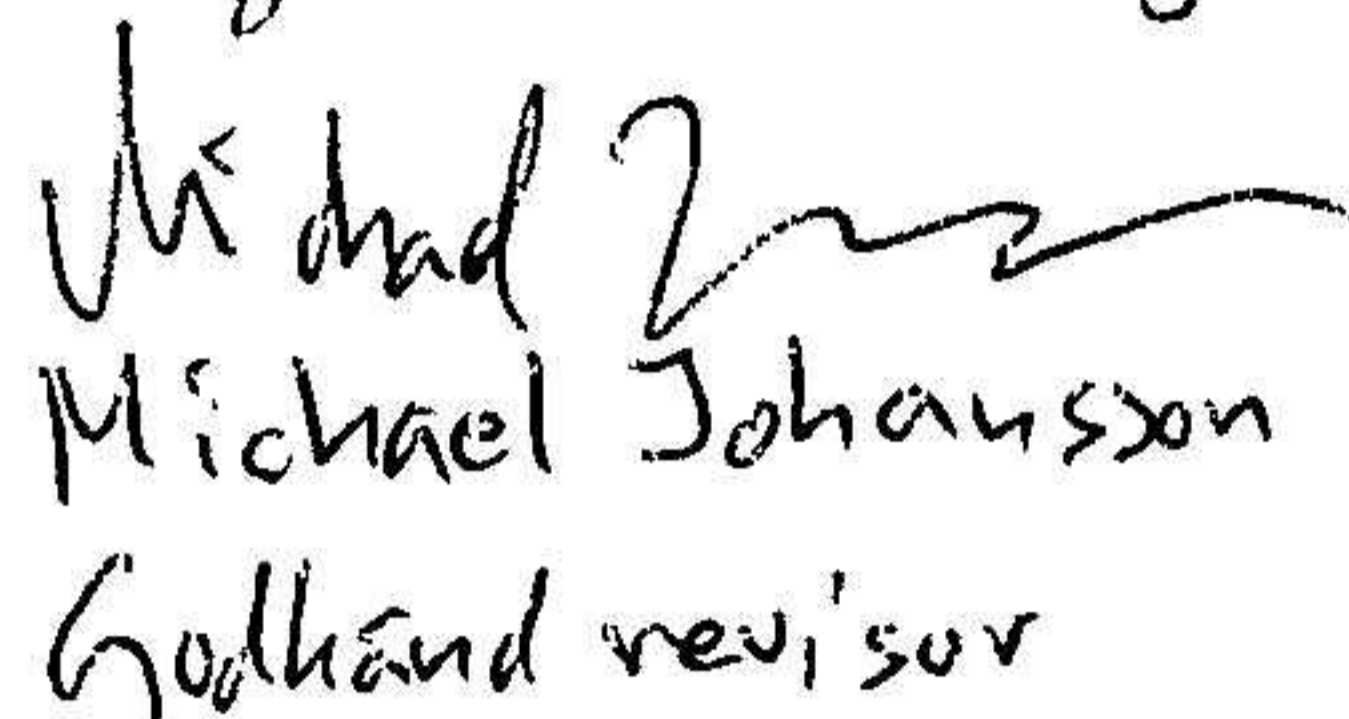 Michael J
Michael Johansson
Godkänd revisor